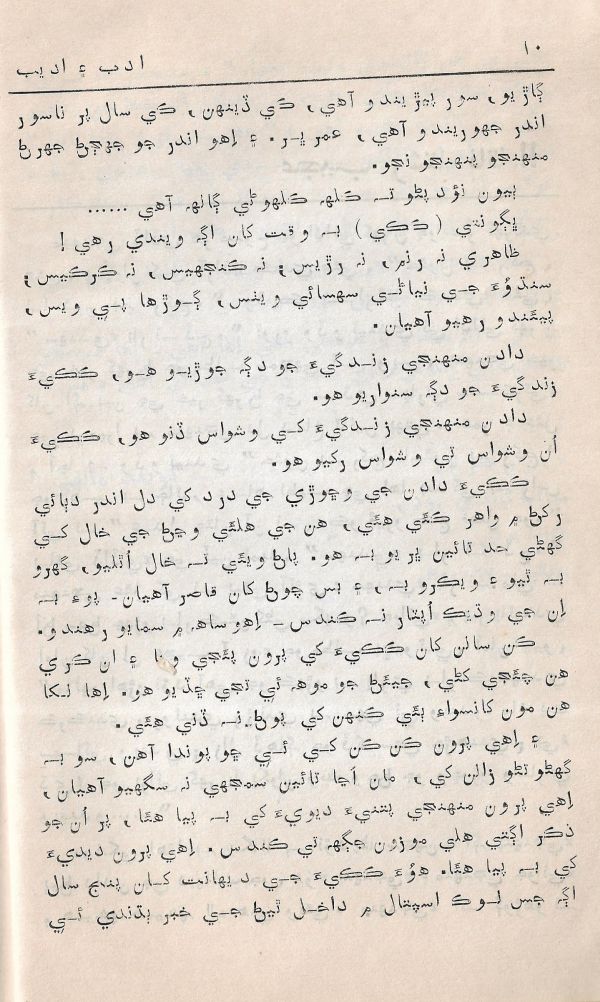 ١٠
ادب ۽ اديب
ڳاڙيو، سور پيڙيندو آهي، ڪي ڏينهن، ڪي سال پر ناسور
اندر جهوريندو آهي، عمر ڀر. ۽ اِهو اندر جو جهڄڻ جهرڻ
منهنجو پنهنجو نجو.
ٻيون نؤد پٹو تہ ڪلهہ ڪلهوڻي ڳالهہ آهي ......
ڀڳونتي (ڪڪي) بہ وقت کان اڳہ ويندي رهي!
ظاهري نہ رنم، نہ رڙيس؛ نہ ڪنجهيس، نہ ڪرڪيس؛
سنڌوُءَ جي نياڻي سهسائي ويٺس، ڳوڙها پي ويس،
پيئندو رهيو آهيان.
دادن منهنجي زندگيءَ جو دڳہ جوڙيو هو، ڪڪيءَ
زندگيءَ جو دڳہ سنواريو هو.
دادن منهنجي زندگيءَ کي وشواس ڏنو هو، ڪڪيءَ
اُن وشواس تي وشواس رکيو هو.
ڪڪيءَ دادن جي وڇوڙي جي درد کي دل اندر دٻائي
رکڻ ۾ واهر ڪئي هئي، هن جي هلئي وڃڻ جي خال کي
گهڻي حد تائين ڀريو بہ هو. پاڻ ويئي تہ خال اُٿليو، گهرو
بہ ٿيو ۽ ويڪرو بہ، ۽ بس چوڻ کان قاصر آهيان - پوءِ بہ
اِن جي وڌيڪ اُپٽار نہ ڪندس - اِهو ساهہ ۾ سمايو رهندو.
ڪن سالن کان ڪڪيءَ کي پرون پئجي ويا ۽ ان ڪري
هن چئجي کڻي، جيئڻ جو موهہ ئي تجي ڇڏيو هو. اِها لڪا
هن مون کانسواءِ ٻئي ڪنهن کي پوڻ نہ ڏني هئي.
۽ اِهي پرون ڪن ڪن کي ئي ڇو پوندا آهن، سو بہ
گهڻو تڻو زالن کي، مان اَڃا تائين سمجهي نہ سگهيو آهيان،
اِهي پرون منهنجي پتنيءَ ديويءَ کي بہ پيا هئا، پر اُن جو
ذڪر اڳتي هلي موزون جڳهہ تي ڪندس. اِهي پرون ديديءَ
کي بہ پيا هئا. هوُءَ ڪڪيءَ جي ديهانت کان پنج سال
اڳہ جس لوڪ اسپتال ۾ داخل ٿيڻ جي خبر ٻڌندي ئي